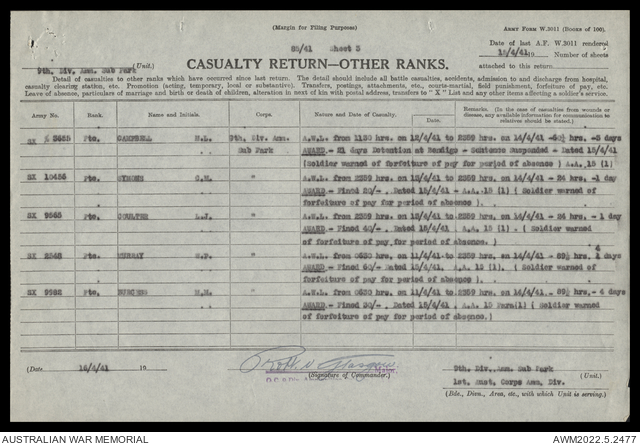 (Margin for Filing Purposes)
ARMY FORM W.3011 (Books of 100).
85/41 Sheet 5
Date of last A.F. W.3011 rendered
15/4/41 Number of sheets
attached to this return
9th. Div. Amn. Sub Park (Unit.)
CASUALTY RETURN—OTHER RANKS.
Detail of casualties to other ranks which have occurred since last return. The detail should include all battle casualties, accidents, admission to and discharge from hospital,
casualty clearing station, etc. Promotion (acting, temporary, local or substantive). Transfers, postings, attachments, etc., courts-martial, field punishment, forfeiture of pay, etc.
Leave of absence, particulars of marriage and birth or death of children, alteration in next of kin with postal address, transfers to "X" List and any other items affecting a soldier's service.
Army No. Rank. Name and Initials. Corps. Nature and Date of Casualty. Date. Remarks. (In the case of casualties from wounds or disease, any available information for communication to relatives should be stated.)
SX Pte. CAMPBELL 9th. Div. Amn. A.W.L. from 1130 hrs. on 12/4/41 to 2359 hrs. on 14/4/41 - 60½ hrs. - 3 days
Sub Park AWARD - 21 days Detention at Bendigo - Sentence Suspended - Dated 15/4/41
(Soldier warned of forfeiture of pay for period of absence) A.A. 15 (1)
SX Pte. " A.W.L. from 2359 hrs. on 13/4/41 to 2359 hrs. on 14/4/41 - 24 hrs. - 1 day
AWARD - Fined 20/- . Dated 15/4/41 - A.A. 15 (1) ( Soldier warned of
forfeiture of pay for period of absence ).
SX Pte. COULTER L.J. " A.W.L. from 2359 hrs. on 13/4/41 to 2359 hrs. on 14/4/41 - 24 hrs. - 1 day
AWARD - Fined 40/- . Dated 15/4/41. A.A. 15 (1). ( Soldier warned
of forfeiture of pay for period of absence.)
SX Pte. MURRAY " A.W.L. from 0630 hrs. on 11/4/41 to 2359 hrs. on 14/4/41. 89½ hrs. 4 days
AWARD - Fined 60/- Dated 15/4/41. A.A. 15 (1). ( Soldier warned
of forfeiture of pay for period of absence.)
SX Pte. BURGESS " A.W.L. from 0630 hrs. on 11/4/41 to 2359 hrs. on 14/4/41. 89½ hrs - 4 days
AWARD - Fined 50/- . Dated 15/4/41. A.A. 15 Para(1) ( Soldier warned
of forfeiture of pay for period of absence.)
(Date 16/4/41 19
(Signature of Commander.)
9th. Div. Amn. Sub Park (Unit.)
1st. Aust. Corps Amn. Div.
(Bde., Divn., Area, etc., with which Unit is serving.)
AUSTRALIAN WAR MEMORIAL
AWM2022.5.2477